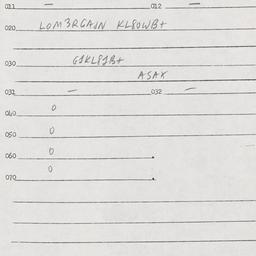 011 — 012 —
020 LOM3RGAIN KL80WB+
030 GJKL8JB+
ASAX
031 — 032 —
040 0
050 0
060 0
070 0